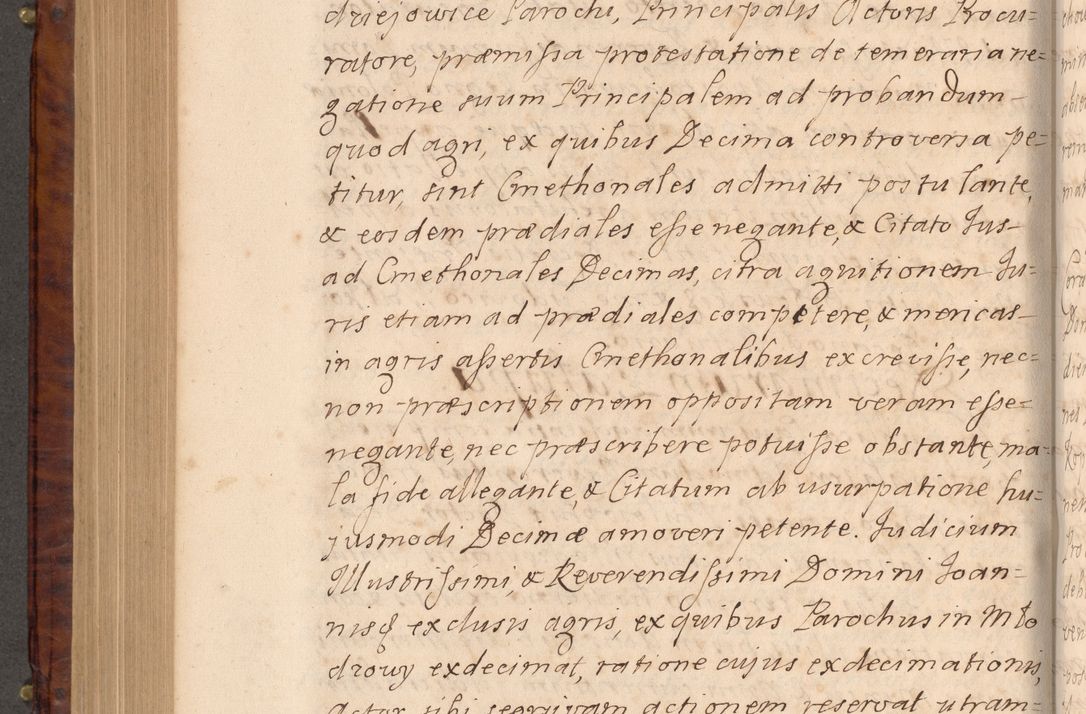 driejowice Parochi, Principalis Actoris Procu=
ratore, præmissa protestatione de temeraria ne=
gatione suum Principalem ad probandum
quod agri, ex quibus Decima controversa pe=
titur, sint Cmethonales admitti postulante,
& eosdem prædiales esse negante, & Citato Jus
ad Cmethonales Decimas, citra agnitionem Ju=
ris etiam ad prædiales competere, & mericas
in agris assertis Cmethonalibus excrevisse, nec=
non præscriptionem oppositam veram esse
negante, nec præscribere potuisse obstante, ma=
la fide allegante, & Citatum ab usurpatione hu=
jusmodi Decimæ amoveri petente. Judicium
Illustrissimi, & Reverendissimi Domini Joan=
nisq exclusis agris, ex quibus Parochus in Mło
drowy exdecimat, ratione cujus exdecimationis,
Actor sibi seorsivam actionem reservat utram=